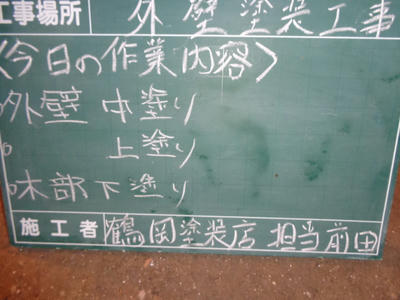 工事場所 外壁塗装工事
〈今日の作業内容〉
○外壁 中塗り
○ 上塗り
○木部下塗り
施工者 鶴岡塗装店 担当前田